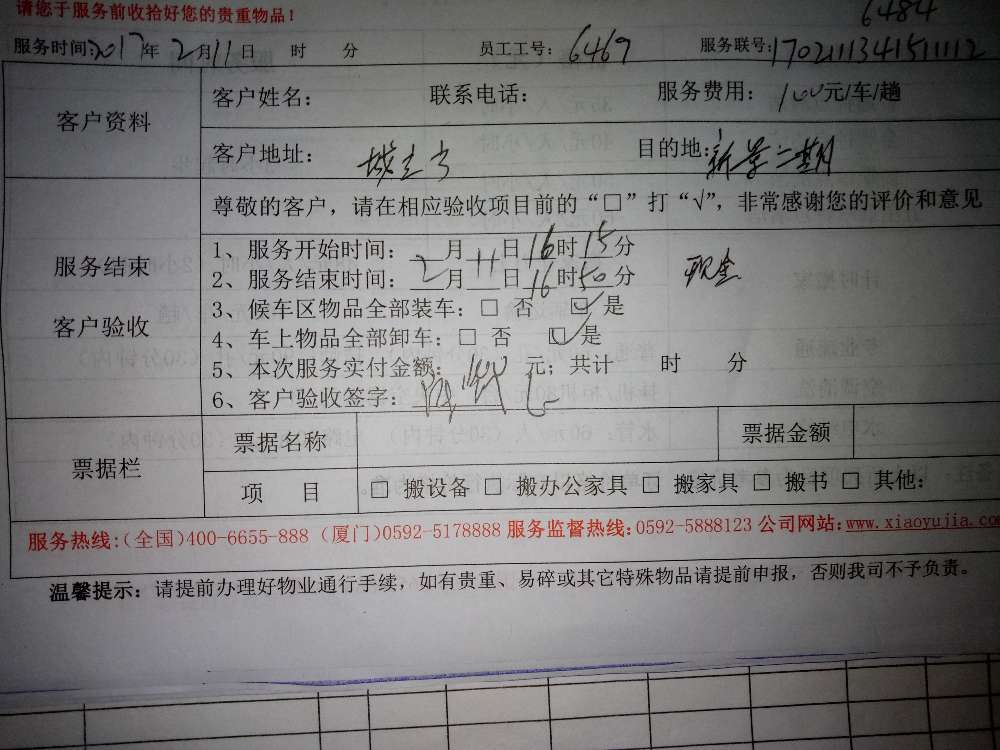 请您于服务前收拾好您的贵重物品！
6484
服务时间:2017年2月11日 时 分 员工工号：6469 服务联号:1702111341511112
客户资料
客户姓名： 联系电话： 服务费用：100元/车/趟
客户地址： 目的地:新景二期
尊敬的客户，请在相应验收项目前的“□”打“√”，非常感谢您的评价和意见
服务结束
客户验收
1、服务开始时间：2月11日16时15分
2、服务结束时间：2月11日16时50分 现金
3、候车区物品全部装车：□ 否 ☑ 是
4、车上物品全部卸车：□ 否 ☑ 是
5、本次服务实付金额： 元；共计 时 分
6、客户验收签字：
票据栏
票据名称 票据金额
项 目 □ 搬设备 □ 搬办公家具 □ 搬家具 □ 搬书 □ 其他：
服务热线:(全国)400-6655-888 (厦门)0592-5178888 服务监督热线:0592-5888123 公司网站:www.xiaoyujia.co
温馨提示：请提前办理好物业通行手续，如有贵重、易碎或其它特殊物品请提前申报，否则我司不予负责。